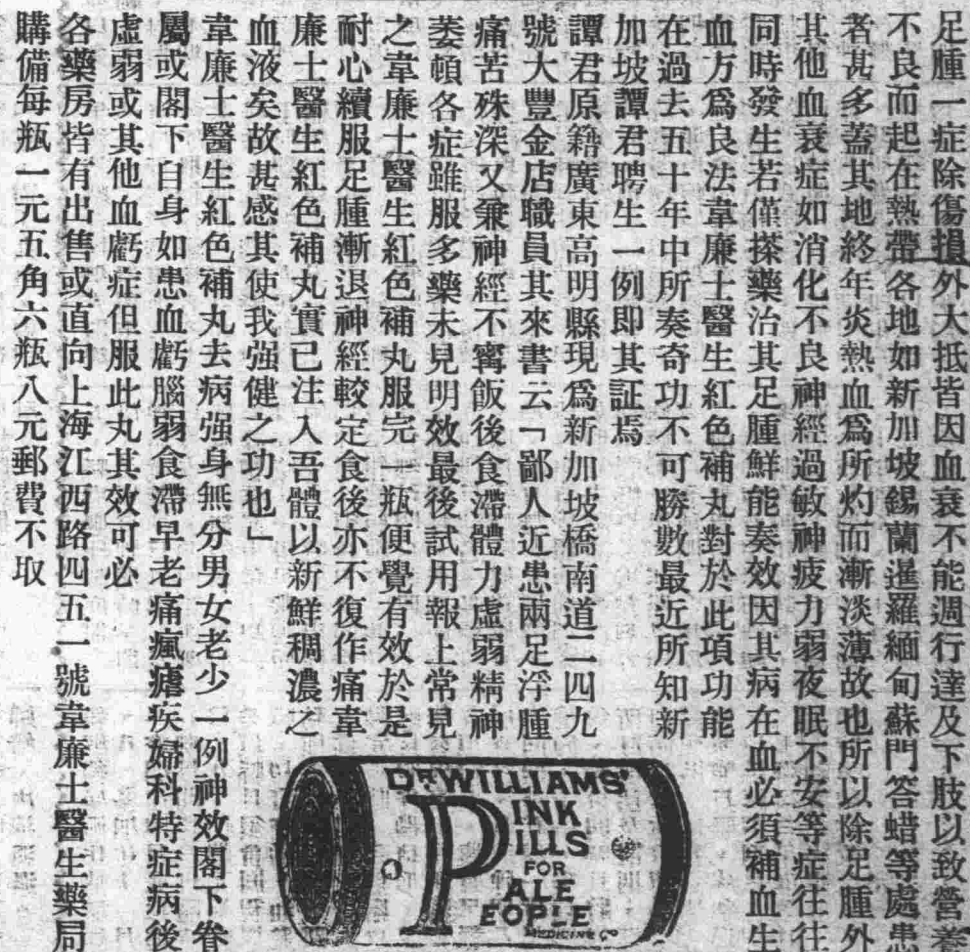 足腫一症除傷損外大抵皆因血衰不能週行達及下肢以致營養
不良而起在熱帶各地如新加坡錫蘭暹羅緬甸蘇門答蜡等處患
者甚多蓋其地終年炎熱血爲所灼而漸淡薄故也所以除足腫外
其他血衰症如消化不良神經過敏神疲力弱夜眠不安等症往往
同時發生若僅搽藥治其足腫鮮能奏效因其病在血必須補血生
血方爲良法韋廉士醫生紅色補丸對於此項功能
在過去五十年中所奏奇功不可勝數最近所知新
加坡譚君聘生一例即其証焉
譚君原籍廣東高明縣現爲新加坡橋南道二四九
號大豐金店職員其來書云「鄙人近患兩足浮腫
痛苦殊深又兼神經不寗飯後食滯體力虛弱精神
萎頓各症雖服多藥未見明效最後試用報上常見
之韋廉士醫生紅色補丸服完一瓶便覺有效於是
耐心續服足腫漸退神經較定食後亦不復作痛韋
廉士醫生紅色補丸實已注入吾體以新鮮稠濃之
血液矣故甚感其使我强健之功也」
韋廉士醫生紅色補丸去病强身無分男女老少一例神效閣下眷
屬或閣下自身如患血虧腦弱食滯早老痛瘋瘧疾婦科特症病後
虛弱或其他血虧症但服此丸其效可必
各藥房皆有出售或直向上海江西路四五一號韋廉士醫生藥局
購備每瓶一元五角六瓶八元郵費不取
DR WILLIAMS'
PINK
PILLS
FOR
PALE
PEOPLE
MEDICINE CO